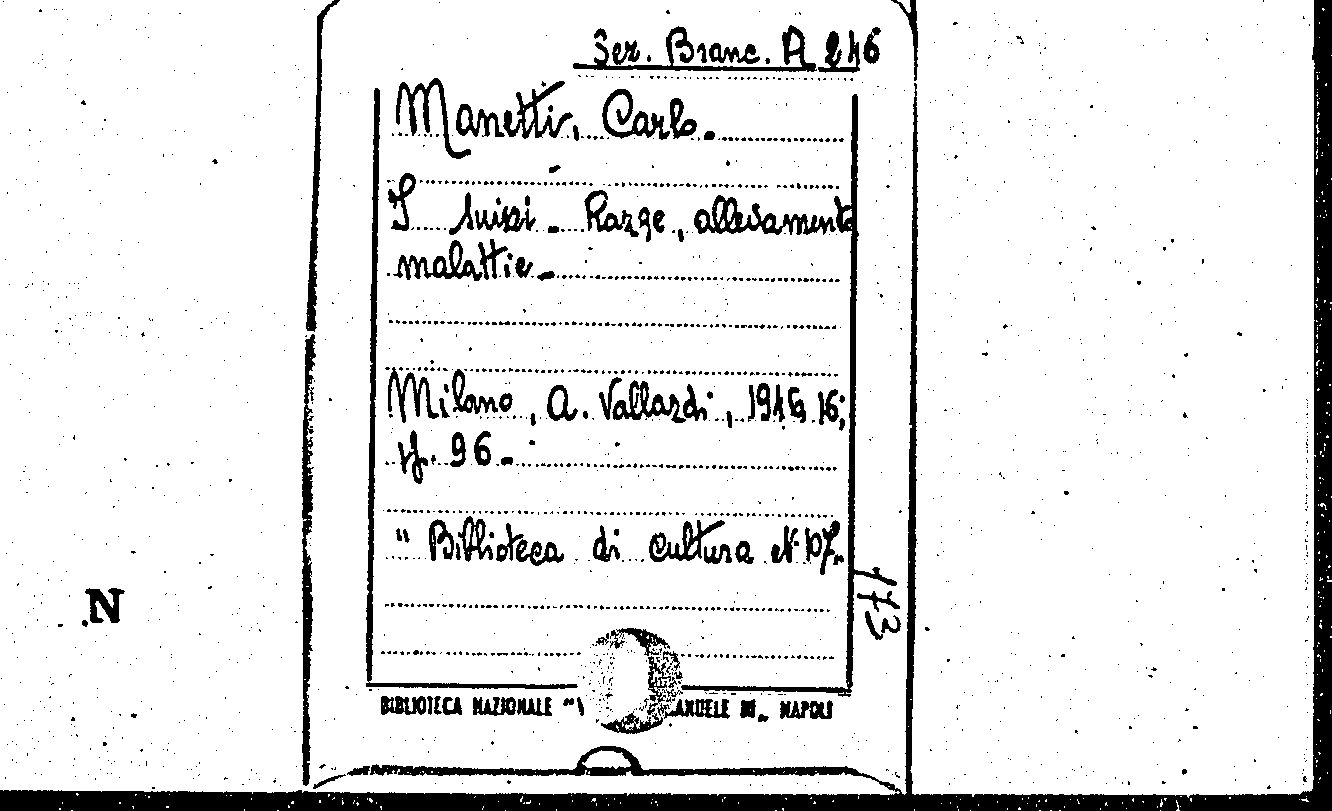 Sez. Branc. A 246
Manetti, Carlo.
I suini - Razze, allevamento
malattie -
Milano, A. Vallardi, 1946, 16;
pp. 96 -
" Biblioteca di cultura N. 107.
173
N
BIBLIOTECA NAZIONALE "V ANUELE III" NAPOLI